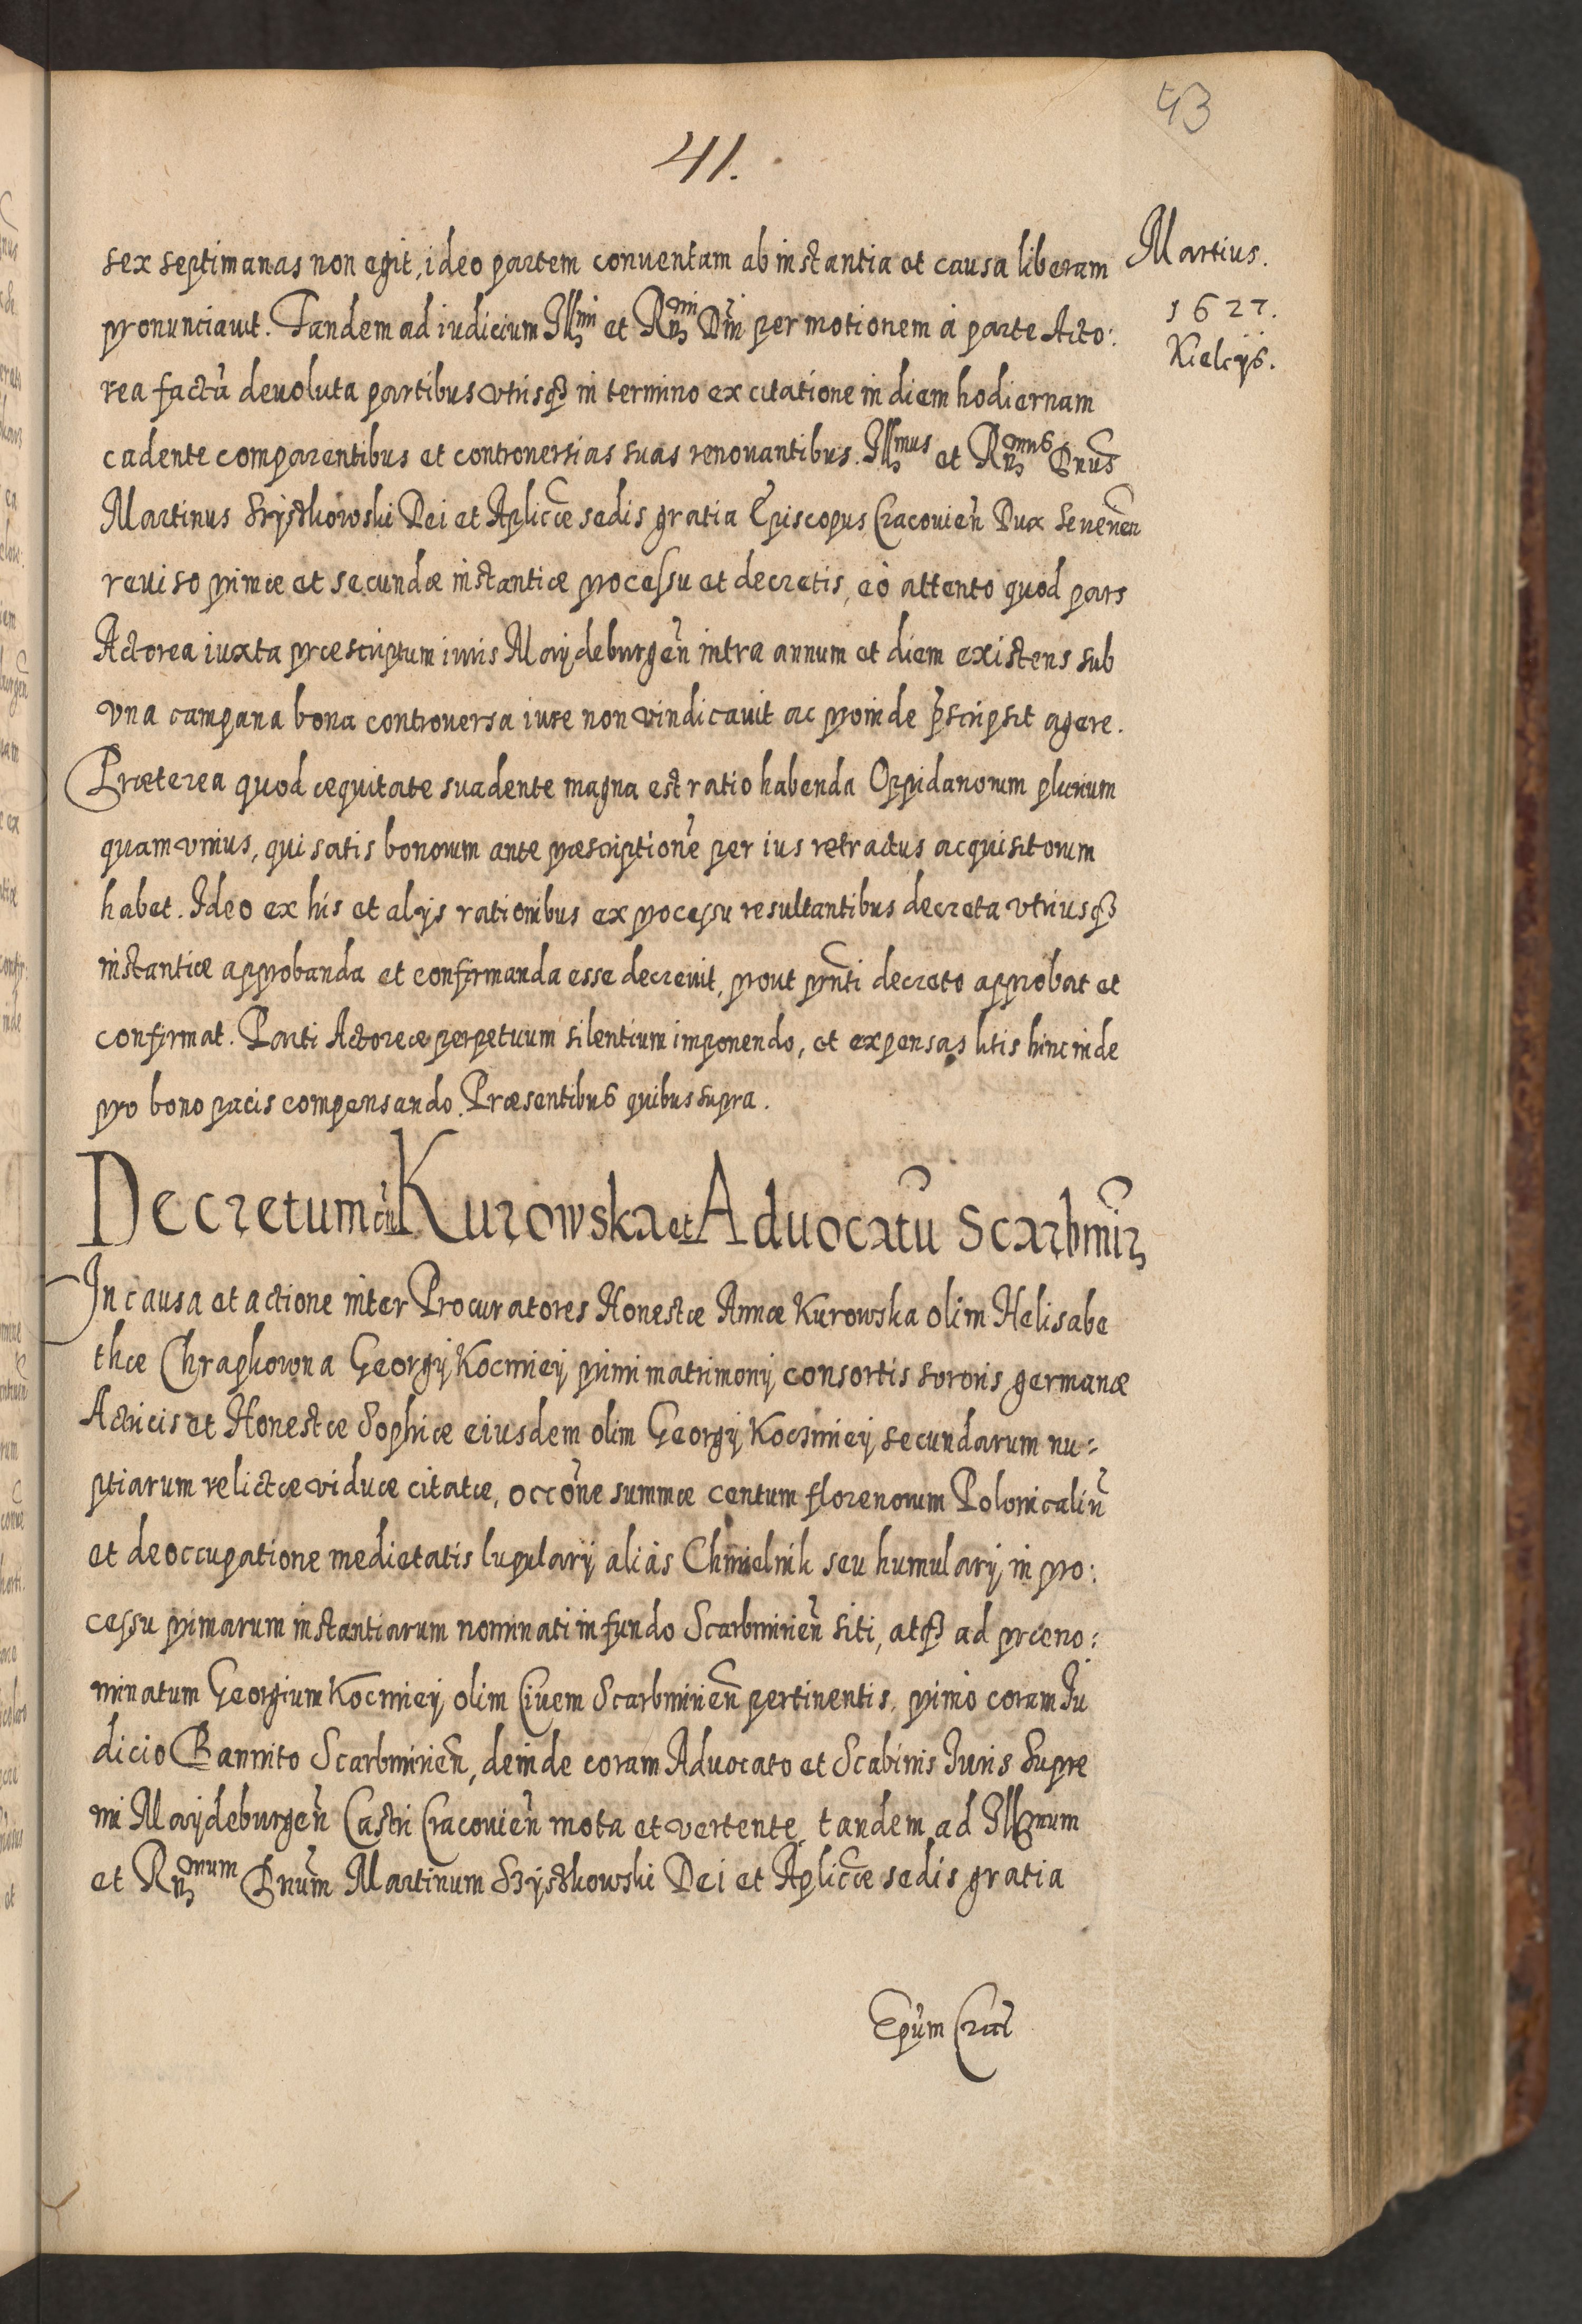 43
41.
Martius.
1627.
Kielcijs.
sex septimanas non egit, ideo partem conuentam ab instantia et causa liberam
pronunciauit. Tandem ad iudicium Illmi et Rmi Dni per motionem à parte Acto:
rea factã deuoluta partibus vtrisqꝫ in termino ex citatione in diem hodiernam
cadente comparentibus et controuersias suas renouantibus. Illmus et Rmus Dnus
Martinus Szÿszkowski Dei et Aplicæ sedis gratia Episcopus Cracouieñ Dux Seuerieñ
reuiso primæ et secundæ instantiæ processu et decretis, eò attento quod pars
Actorea iuxta præscriptum iuris Maÿdeburgeñ intra annum et diem existens sub
vna campana bona controversa iure non vindicauit ac proinde p̃scripsit agere.
Præterea quod æquitate suadente magna est ratio habenda Oppidanorum plurium
quam vnius, qui satis bonorum ante præscriptionẽ per ius retractus acquisitorum
habet. Ideo ex his et alijs rationibus ex processu resultantibus decreta vtriusqꝫ
instantiæ approbanda et confirmanda esse decreuit, prout pñti decreto approbat et
confirmat. Parti Actoreæ perpetuum silentium imponendo, et expensas litis hinc inde
pro bono pacis compensando. Præsentibus quibus supra.
Decretum cũ Kurowska et Aduocatũ Scarbmir
In causa et actione inter Procuratores Honestæ Annæ Kurowska olim Helisabe
thæ Chrapkowna Georgij Kocmieÿ primi matrimonij consortis sororis germanæ
Actricis et Honestæ Sophiæ eiusdem olim Georgij Kocmieÿ secundarum nu=
ptiarum relictæ viduæ citatæ, occoñe summæ centum florenorum Polonicaliũ
et deoccupatione medietatis lupularij aliàs Chmielnik seu humularij, in pro:
cessu primarum instantiarum nominati in fundo Scarbmirieñ siti, atqꝫ ad præno:
minatum Georgium Kocmieÿ olim Ciuem Scarbmirieñ pertinentis, primò coram Iu
dicio Bannito Scarbmirieñ, deinde coram Aduocato et Scabinis Iuris Supre
mi Maÿdeburgeñ Castri Cracouieñ mota et vertente, tandem ad Illmum
et Rmum Dnum Martinum Szÿszkowski Dei et Aplicæ sedis gratia
Epũm Crac